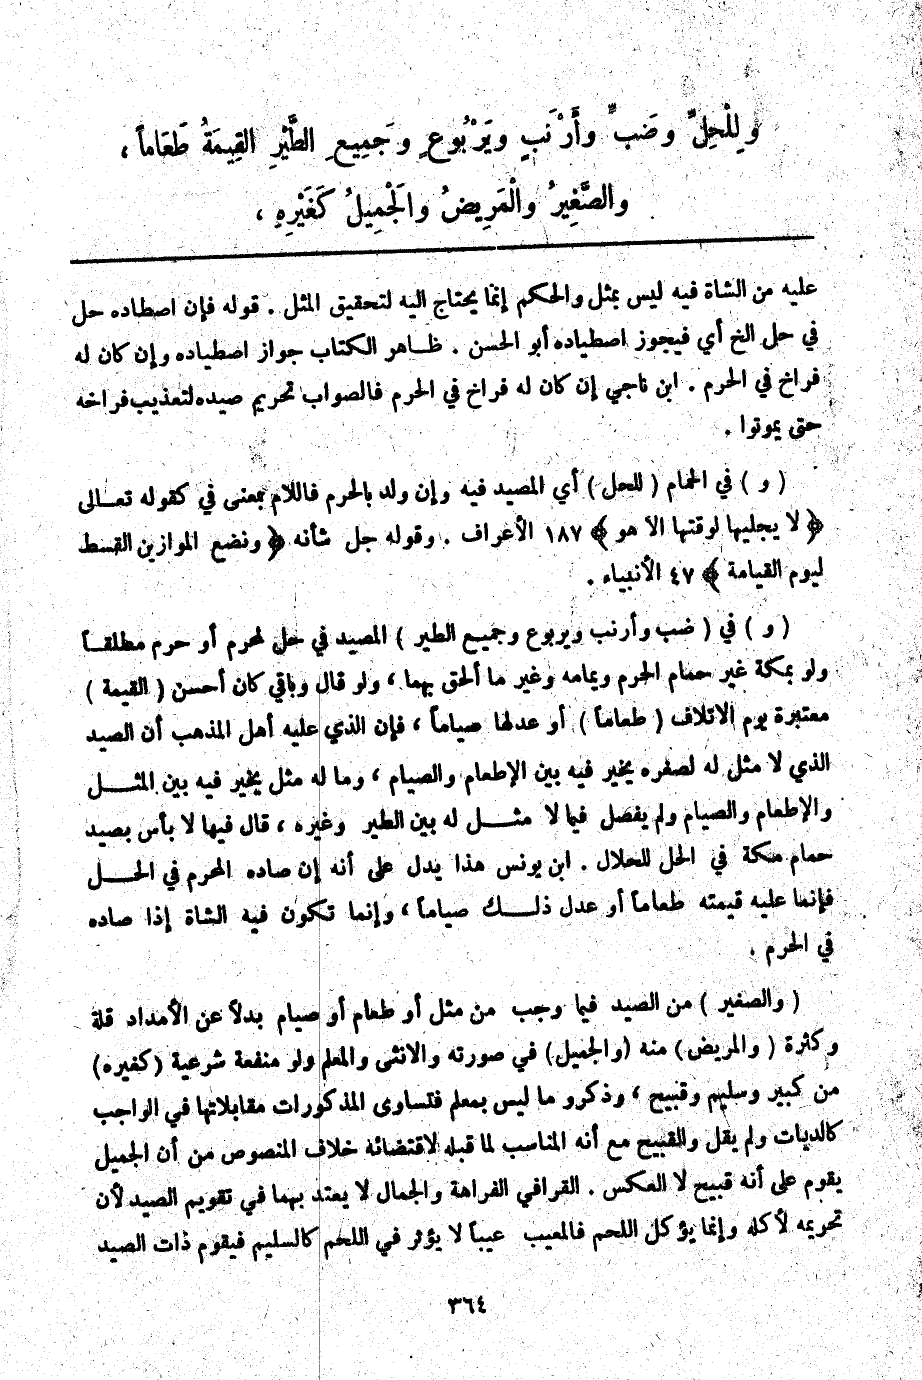 ولِلْحِلِّ وضَبٍّ وأَرْنَبٍ ويَرْبُوعٍ وجَمِيعِ الطَّيْرِ القِيمَةُ طَعَاماً ،
والصَّغِيرُ والْمَرِيضُ والَجْمِيلُ كَغَيْرِهِ ،
عليه من الشاة فيه ليس بمثل والحكم إنما يحتاج اليه لتحقيق المثل . قوله فإن اصطاده حل
في حل الخ أي فيجوز اصطياده أبو الحسن . ظاهر الكتاب جواز اصطياده وإن كان له
فراخ في الحرم . ابن ناجي إن كان له فراخ في الحرم فالصواب تحريم صيده لتعذيب فراخه
حتى يموتوا .
( و ) في الحمام ( للحل ) أي المصيد فيه وإن ولد بالحرم فاللام بمعنى في كقوله تعالى
﴿ لا يجليها لوقتها الا هو ﴾ ١٨٧ الأعراف . وقوله جل شأنه ﴿ ونضع الموازين القسط
ليوم القيامة ﴾ ٤٧ الأنبياء .
( و ) في ( ضب وأرنب ويربوع وجميع الطير ) المصيد في حل لمحرم أو حرم مطلقاً
ولو بمكة غير حمام الحرم ويمامه وغير ما ألحق بهما ، ولو قال وباقي كان أحسن ( القيمة )
معتبرة يوم الاتلاف ( طعاماً ) أو عدلها صياماً ، فإن الذي عليه أهل المذهب أن الصيد
الذي لا مثل له لصغره يخير فيه بين الإطعام والصيام ، وما له مثل يخير فيه بين المثل
والإطعام والصيام ولم يفصل فيما لا مثل له بين الطير وغيره ، قال فيها لا بأس بصيد
حمام مكة في الحل للحلال . ابن يونس هذا يدل على أنه إن صاده المحرم في الحل
فإنما عليه قيمته طعاماً أو عدل ذلك صياماً ، وإنما تكون فيه الشاة إذا صاده
في الحرم .
( والصغير ) من الصيد فيما وجب من مثل أو طعام أو صيام بدلاً عن الأمداد قلة
وكثرة ( والمريض ) منه (والجميل) في صورته والانثى والمعلم ولو منفعة شرعية (كغيره)
من كبير وسليم وقبيح ، وذكرو ما ليس بمعلم فتساوى المذكورات مقابلاتها في الواجب
كالديات ولم يقل والقبيح مع أنه المناسب لما قبله لاقتضائه خلاف المنصوص من أن الجميل
يقوم على أنه قبيح لا العكس . القرافي الفراهة والجمال لا يعتد بهما في تقويم الصيد لأن
تحريمه لأكله وإنما يؤكل اللحم فالمعيب عيباً لا يؤثر في اللحم كالسليم فيقوم ذات الصيد
٣٦٤